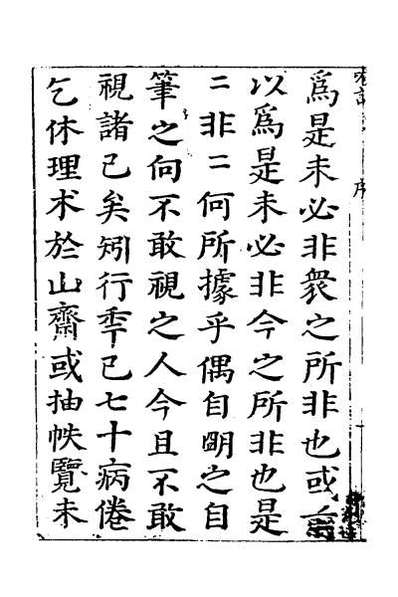 序
爲是未必非衆之所非也或
以爲是未必非今之所非也是
二非二何所據乎偶自明之自
筆之向不敢視之人今且不敢
視諸己矣矧行秊已七十病倦
乞休理术於山齋或抽帙覽未